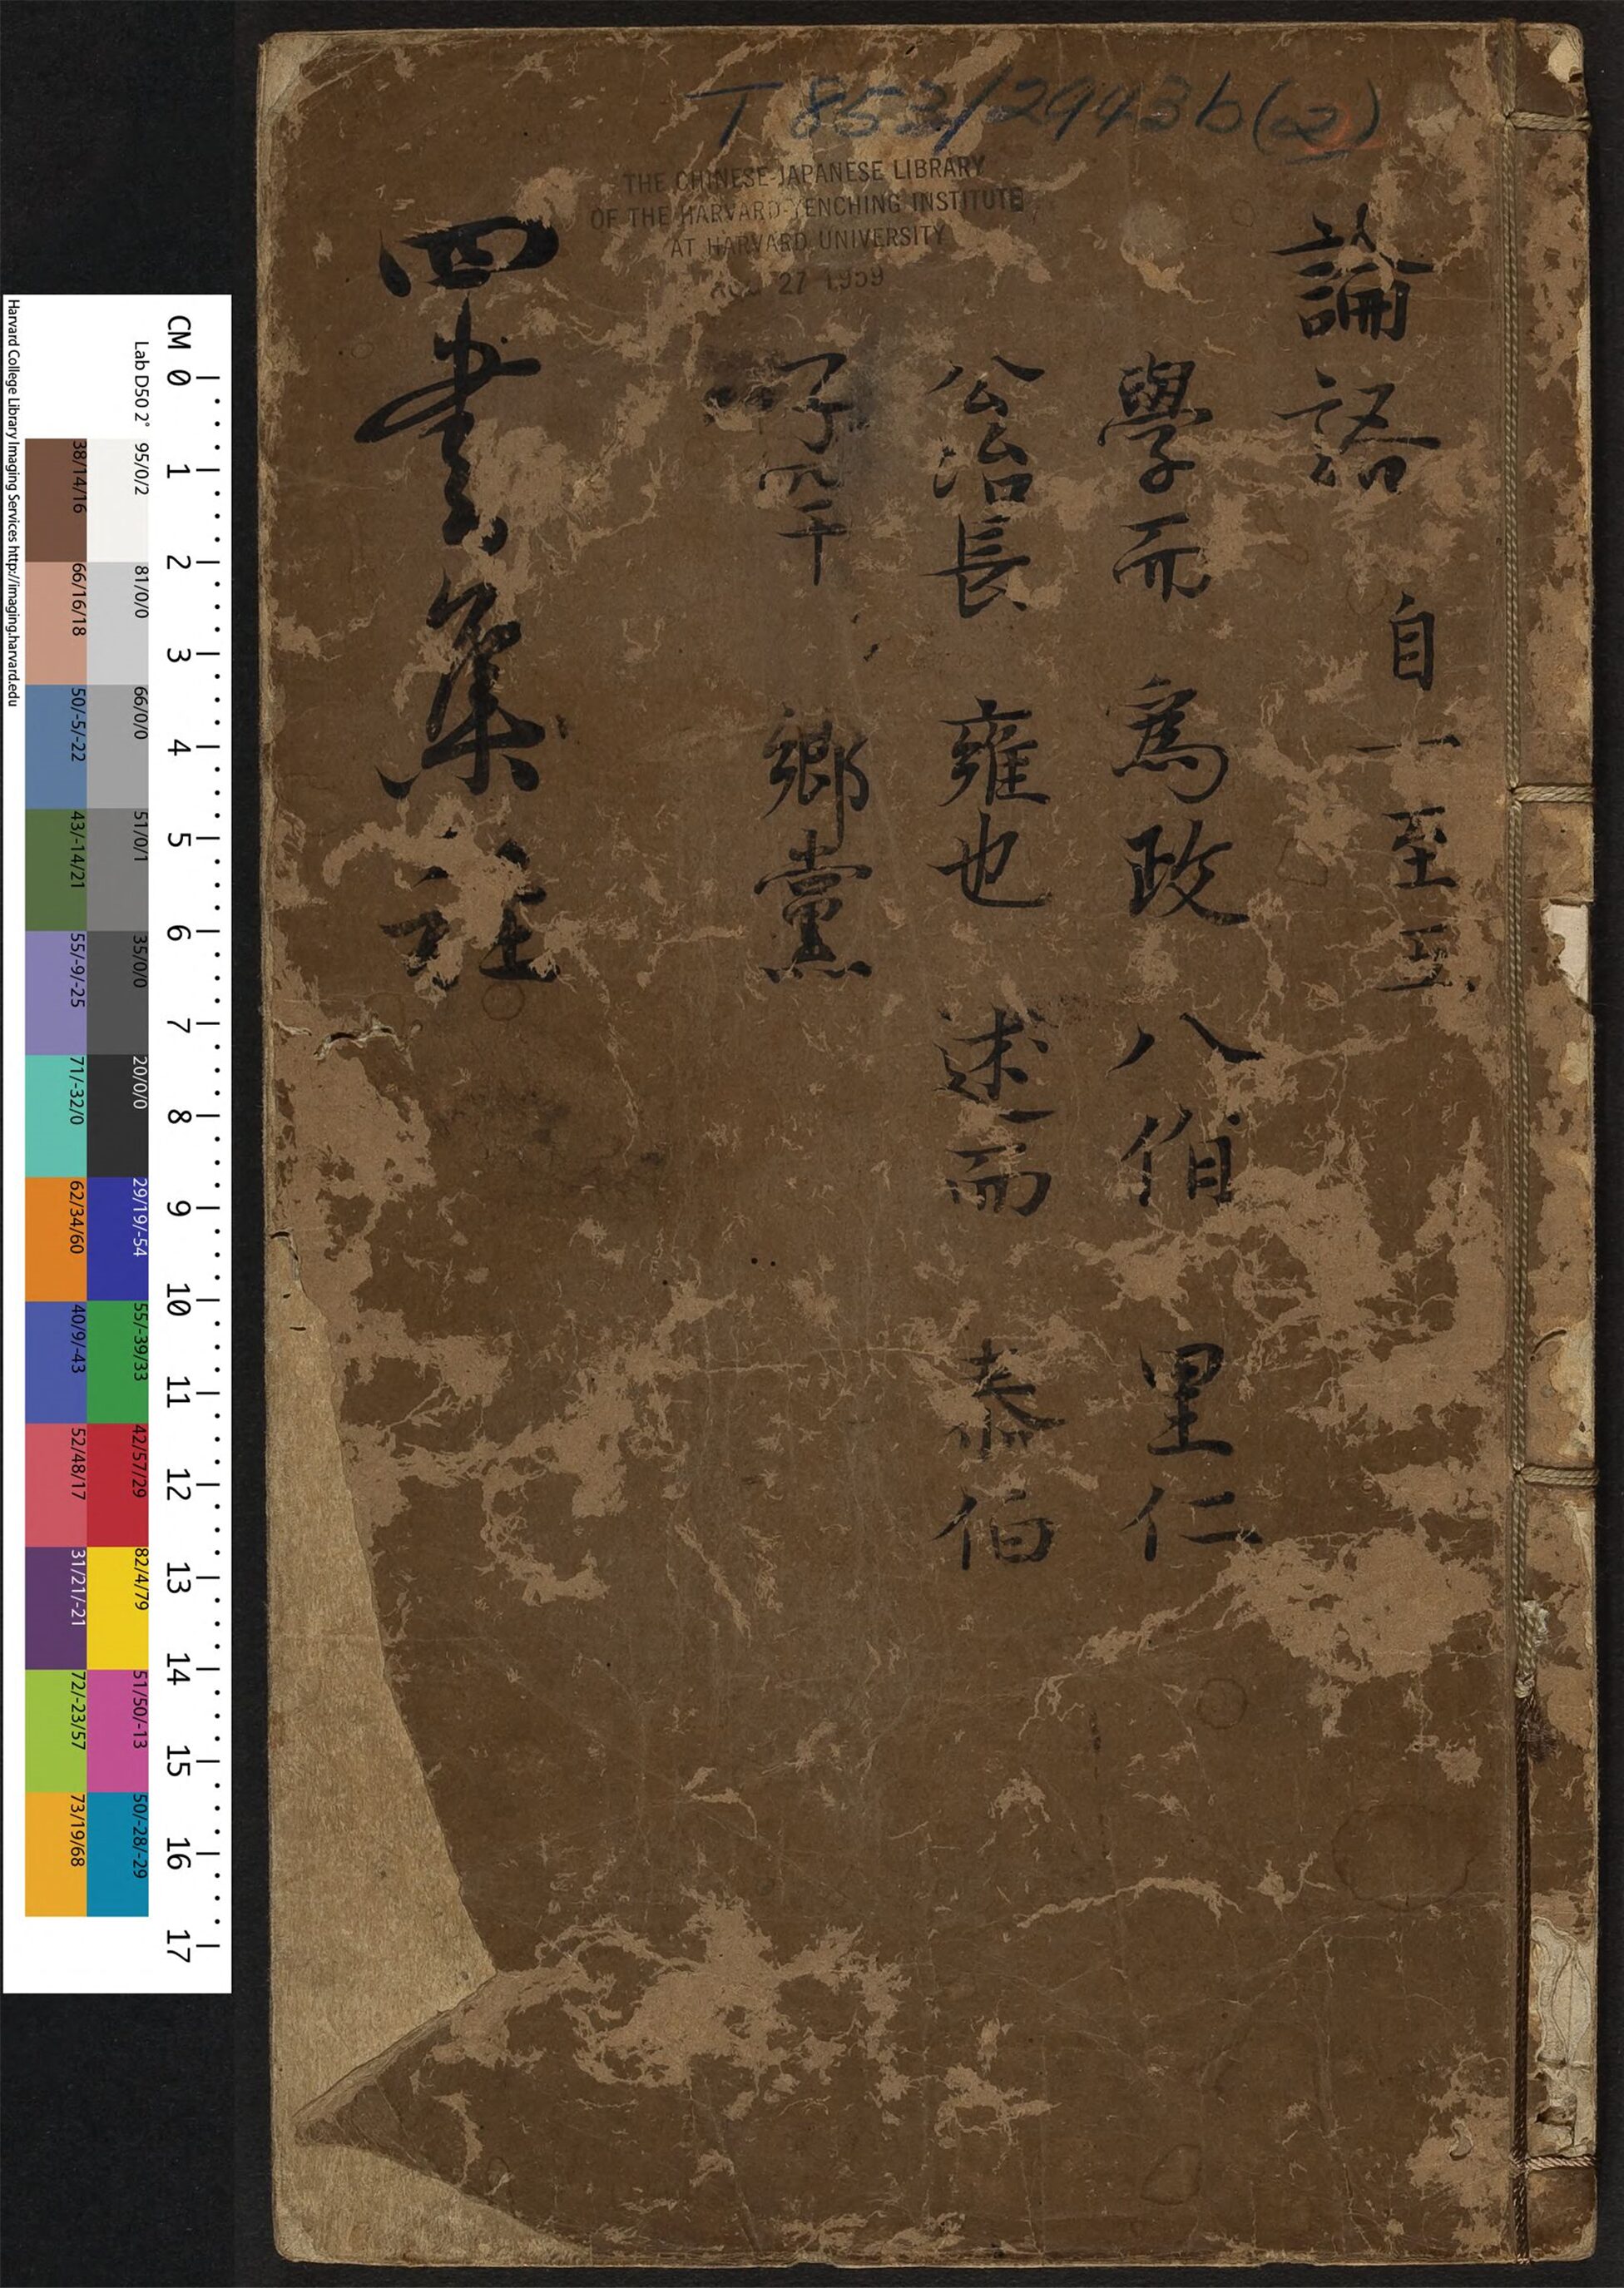 T 852/2943b(2)
THE CHINESE-JAPANESE LIBRARY
OF THE HARVARD-YENCHING INSTITUTE
AT HARVARD UNIVERSITY
27 1959
論語 自一至五
學而 爲政 八佾 里仁
公冶長 雍也 述而 泰伯
子罕 鄉黨
四書集註
CM 0 1 2 3 4 5 6 7 8 9 10 11 12 13 14 15 16 17
Lab D50 2° 95/0/2 81/0/0 66/0/0 51/0/1 35/0/0 20/0/0 29/19/-54 55/-39/33 42/57/29 82/4/79 51/50/-13 50/-28/-29
38/14/16 66/16/18 50/-5/-22 43/-14/21 55/-9/-25 71/-32/0 62/34/60 40/9/-43 52/48/17 31/21/-21 72/-23/57 73/19/68
Harvard College Library Imaging Services http://imaging.harvard.edu